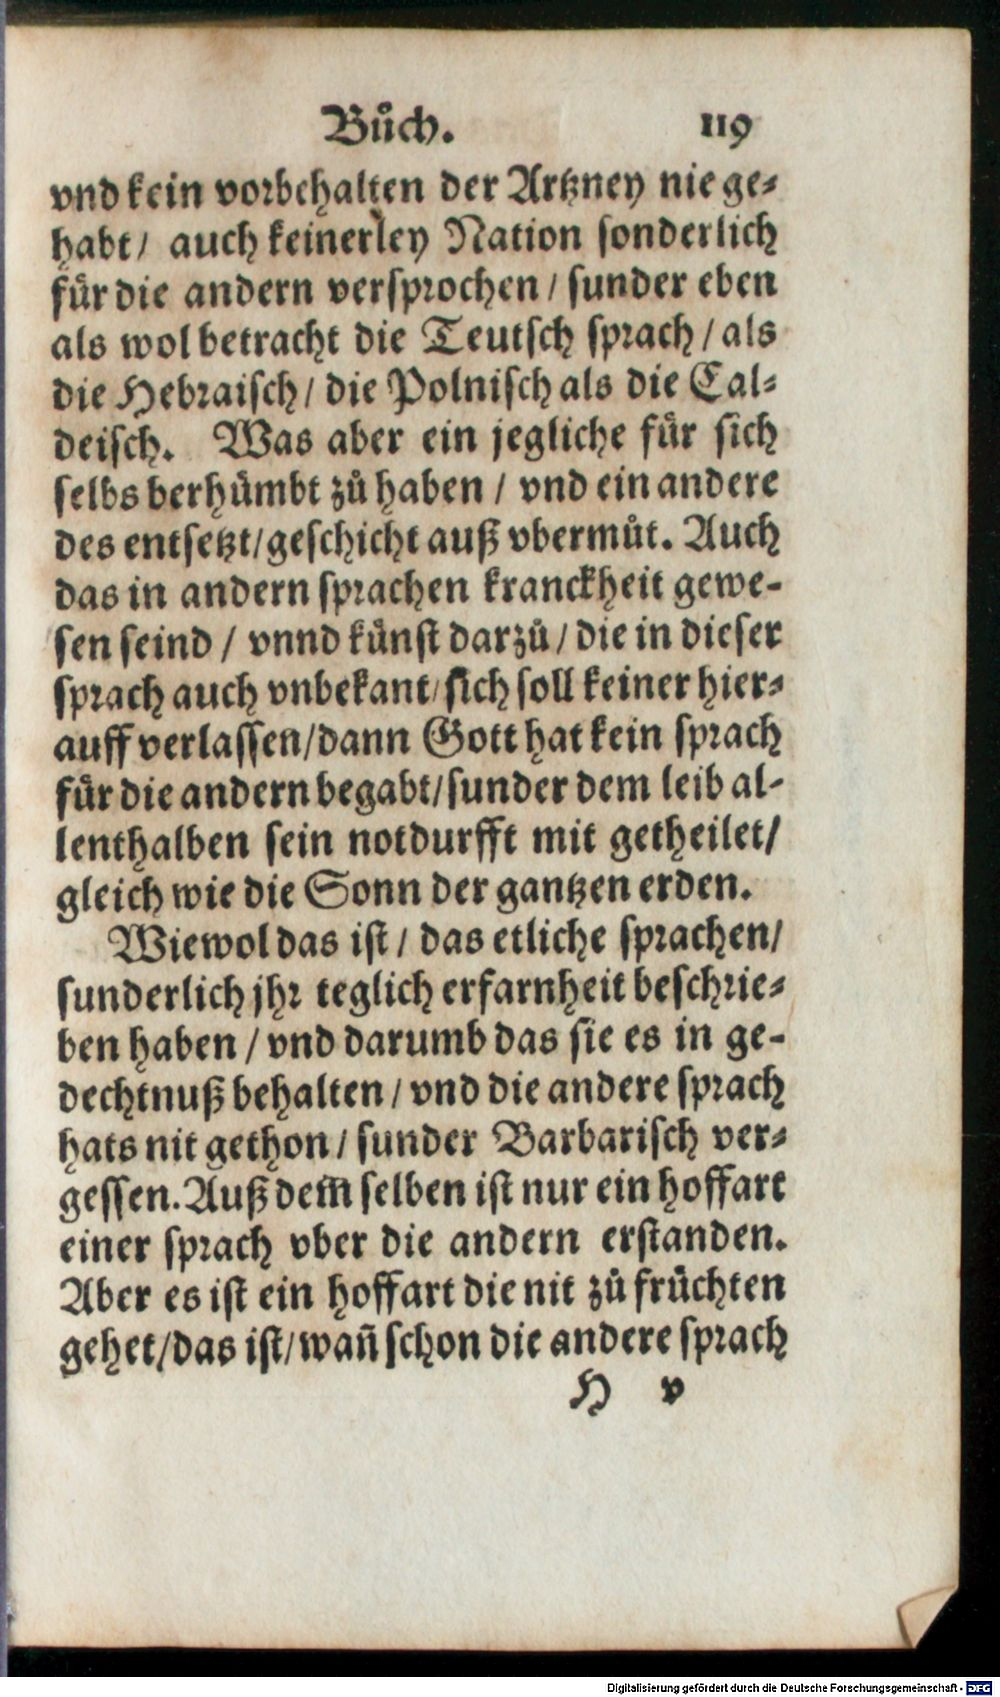 Bůch. 119
vnd kein vorbehalten der Artzney nie ge⸗
habt/ auch keinerley Nation sonderlich
für die andern versprochen / sunder eben
als wol betracht die Teutsch sprach / als
die Hebraisch/ die Polnisch als die Cal⸗
deisch. Was aber ein jegliche für sich
selbs berhümbt zů haben / vnd ein andere
des entsetzt/geschicht auß vbermůt. Auch
das in andern sprachen kranckheit gewe-
sen seind / vnnd künst darzů / die in dieser
sprach auch vnbekant/ sich soll keiner hier⸗
auff verlassen/dann Gott hat kein sprach
für die andern begabt/sunder dem leib al-
lenthalben sein notdurfft mit getheilet/
gleich wie die Sonn der gantzen erden.
Wiewol das ist / das etliche sprachen/
sunderlich jhr teglich erfarnheit beschrie⸗
ben haben / vnd darumb das sie es in ge-
dechtnuß behalten / vnd die andere sprach
hats nit gethon / sunder Barbarisch ver⸗
gessen. Auß dem̃ selben ist nur ein hoffart
einer sprach vber die andern erstanden.
Aber es ist ein hoffart die nit zů früchten
gehet/das ist/wañ schon die andere sprach
H v
Digitalisierung gefördert durch die Deutsche Forschungsgemeinschaft - DFG